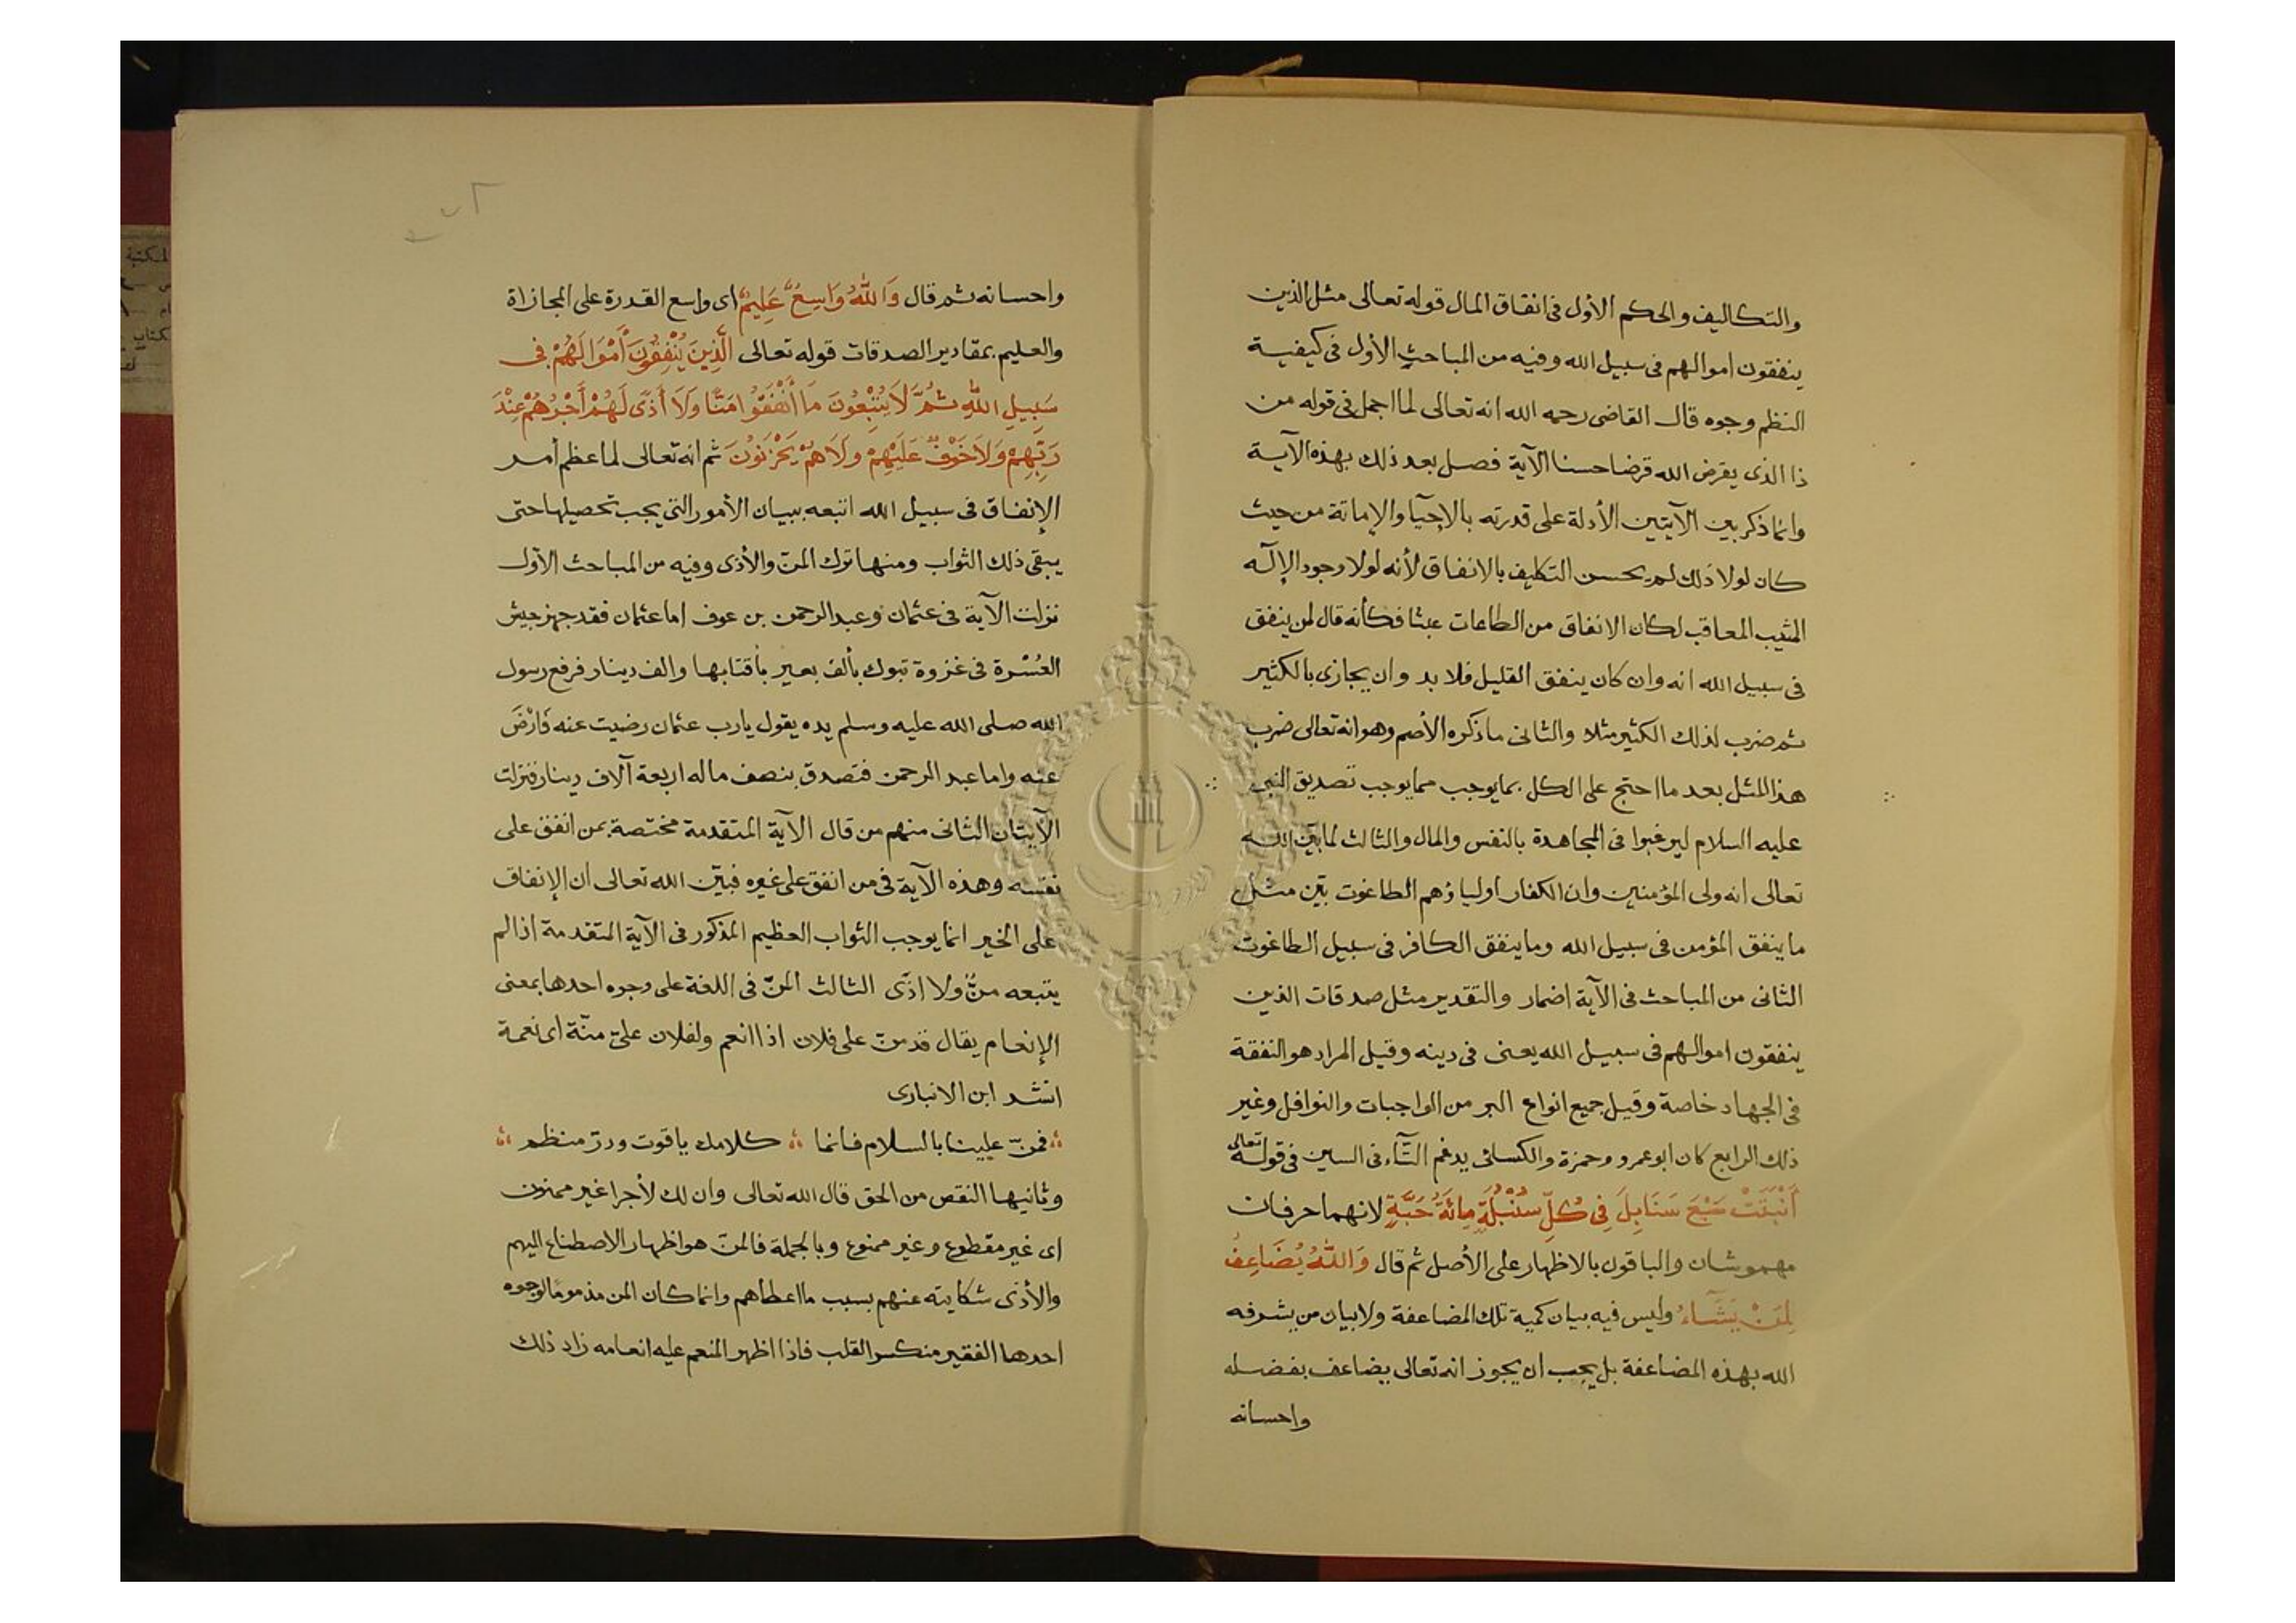 والتكاليف والحكم الأول فى انفاق المال قوله تعالى مثل الذين
ينفقون اموالهم فى سبيل الله وفيه من المباحث الأول فى كيفية
النظم وجوه قال القاضى رحمه الله انه تعالى لما اجمل فى قوله من
ذا الذى يقرض الله قرضا حسنا الآية فصل بعد ذلك بهذه الآية
وانما ذكر بين الآيتين الأدلة على قدرته بالإحيآ والإماتة من حيث
كان لولا ذلك لم يحسن التكليف بالانفاق لأنه لولا وجود الإلٓه
المثيب المعاقب لكان الانفاق من الطاعات عبثا فكأنه قال لمن ينفق
فى سبيل الله انه وان كان ينفق القليل فلا بد وان يجازى بالكثير
ثم ضرب لذلك الكثير مثلا والثانى ما ذكره الأصم وهو انه تعالى ضرب
هذا المثل بعد ما احتج على الكل بما يوجب مما يوجب تصديق النبى
عليه السلام ليرغبوا فى المجاهدة بالنفس والمال والثالث لما بيّن الله
تعالى انه ولى المؤمنين وان الكفار اولياؤهم الطاغوت بيّن مثل
ما ينفق المؤمن فى سبيل الله وما ينفق الكافر فى سبيل الطاغوت
الثانى من المباحث فى الآية اضمار والتقدير مثل صدقات الذين
ينفقون اموالهم فى سبيل الله يعنى فى دينه وقيل المراد هو النفقة
فى الجهاد خاصة وقيل جميع انواع البر من الواجبات والنوافل وغير
ذلك الرابع كان ابو عمرو وحمزة والكسائى يدغم التآء فى السين فى قوله تعالى
أَنْبَتَتْ سَبْعَ سَنَابِلَ فِى كُلِّ سُنْبُلَةٍ مِائَةُ حَبَّةٍ لانهما حرفان
مهموشان والباقون بالاظهار على الأصل ثم قال وَاللهُ يُضَاعِفُ
لِمَنْ يَشَآءُ وليس فيه بيان كمية تلك المضاعفة ولا بيان من يشرفه
الله بهذه المضاعفة بل يجب ان يجوز انه تعالى يضاعف بفضله
واحسانه
واحسانه ثم قال وَاللهُ وَاسِعٌ عَلِيمٌ اى واسع القدرة على المجازاة
والعليم بمقادير الصدقات قوله تعالى الَّذِينَ يُنْفِقُونَ أَمْوَالَهُمْ فِى
سَبِيلِ اللهِ ثُمَّ لَا يُتْبِعُونَ مَا أَنْفَقُوا مَنًّا وَلَا أَذًى لَهُمْ أَجْرُهُمْ عِنْدَ
رَبِّهِمْ وَلَا خَوْفٌ عَلَيْهِمْ وَلَا هُمْ يَحْزَنُونَ ثم انه تعالى لما عظم أمر
الإنفاق فى سبيل الله اتبعه ببيان الأمور التى يجب تحصيلها حتى
يبقى ذلك الثواب ومنها ترك المنّ والأذى وفيه من المباحث الأول
نزلت الآية فى عثمان وعبد الرحمن بن عوف اما عثمان فقد جهز جيش
العُسْرة فى غزوة تبوك بألف بعير بأقتابها والف دينار فرفع رسول
الله صلى الله عليه وسلم يده يقول يا رب عثمان رضيت عنه فَارْضَ
عنه واما عبد الرحمن فتصدق بنصف ماله اربعة آلاف دينار فنزلت
الآيتان الثانى منهم من قال الآية المتقدمة مختصة بمن انفق على
نفسه وهذه الآية فى من انفق على غيره فبيّن الله تعالى ان الإنفاق
على الخير انما يوجب الثواب العظيم المذكور فى الآية المتقدمة اذا لم
يتبعه منٌّ ولا اذًى الثالث المنّ فى اللغة على وجوه احدها بمعنى
الإنعام يقال قد منّ على فلان اذا انعم ولفلان علىّ منّة اى نعمة
انشد ابن الانبارى
فمنّ علينا بالسلام فانما كلامك ياقوت ودرّ منظم
وثانيها النقص من الحق قال الله تعالى وان لك لأجرا غير ممنون
اى غير مقطوع وغير ممنوع وبالجملة فالمنّ هو اظهار الاصطناع اليهم
والأذى شكايته عنهم بسبب ما اعطاهم وانما كان المن مذموما لوجوه
احدها الفقير منكسر القلب فاذا اظهر المنعم عليه انعامه زاد ذلك